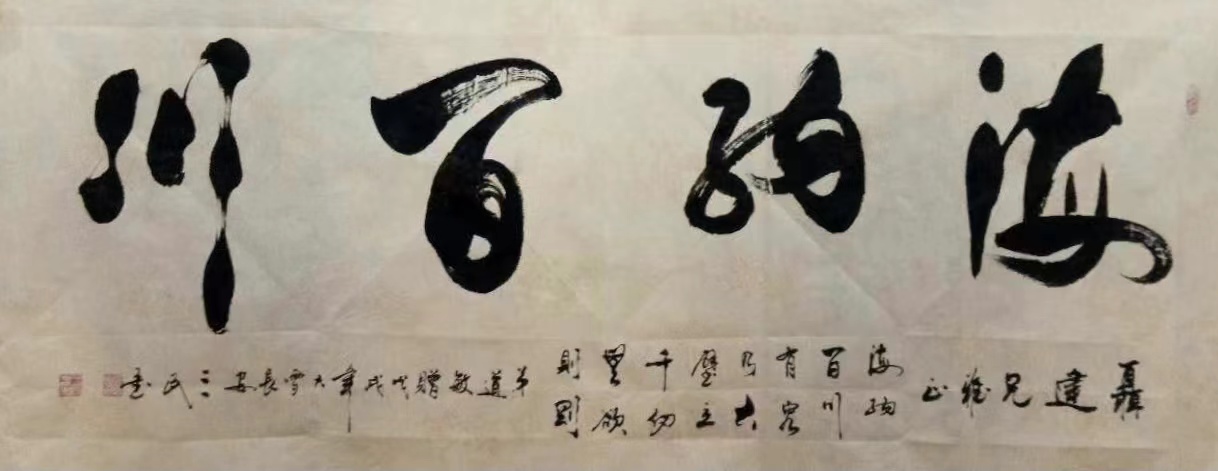 海納百川
聶建兄雅正
海納
百川
有容
乃大
壁立
千仞
無欲
則剛
弟道敏贈戊戌年大雪長安三民